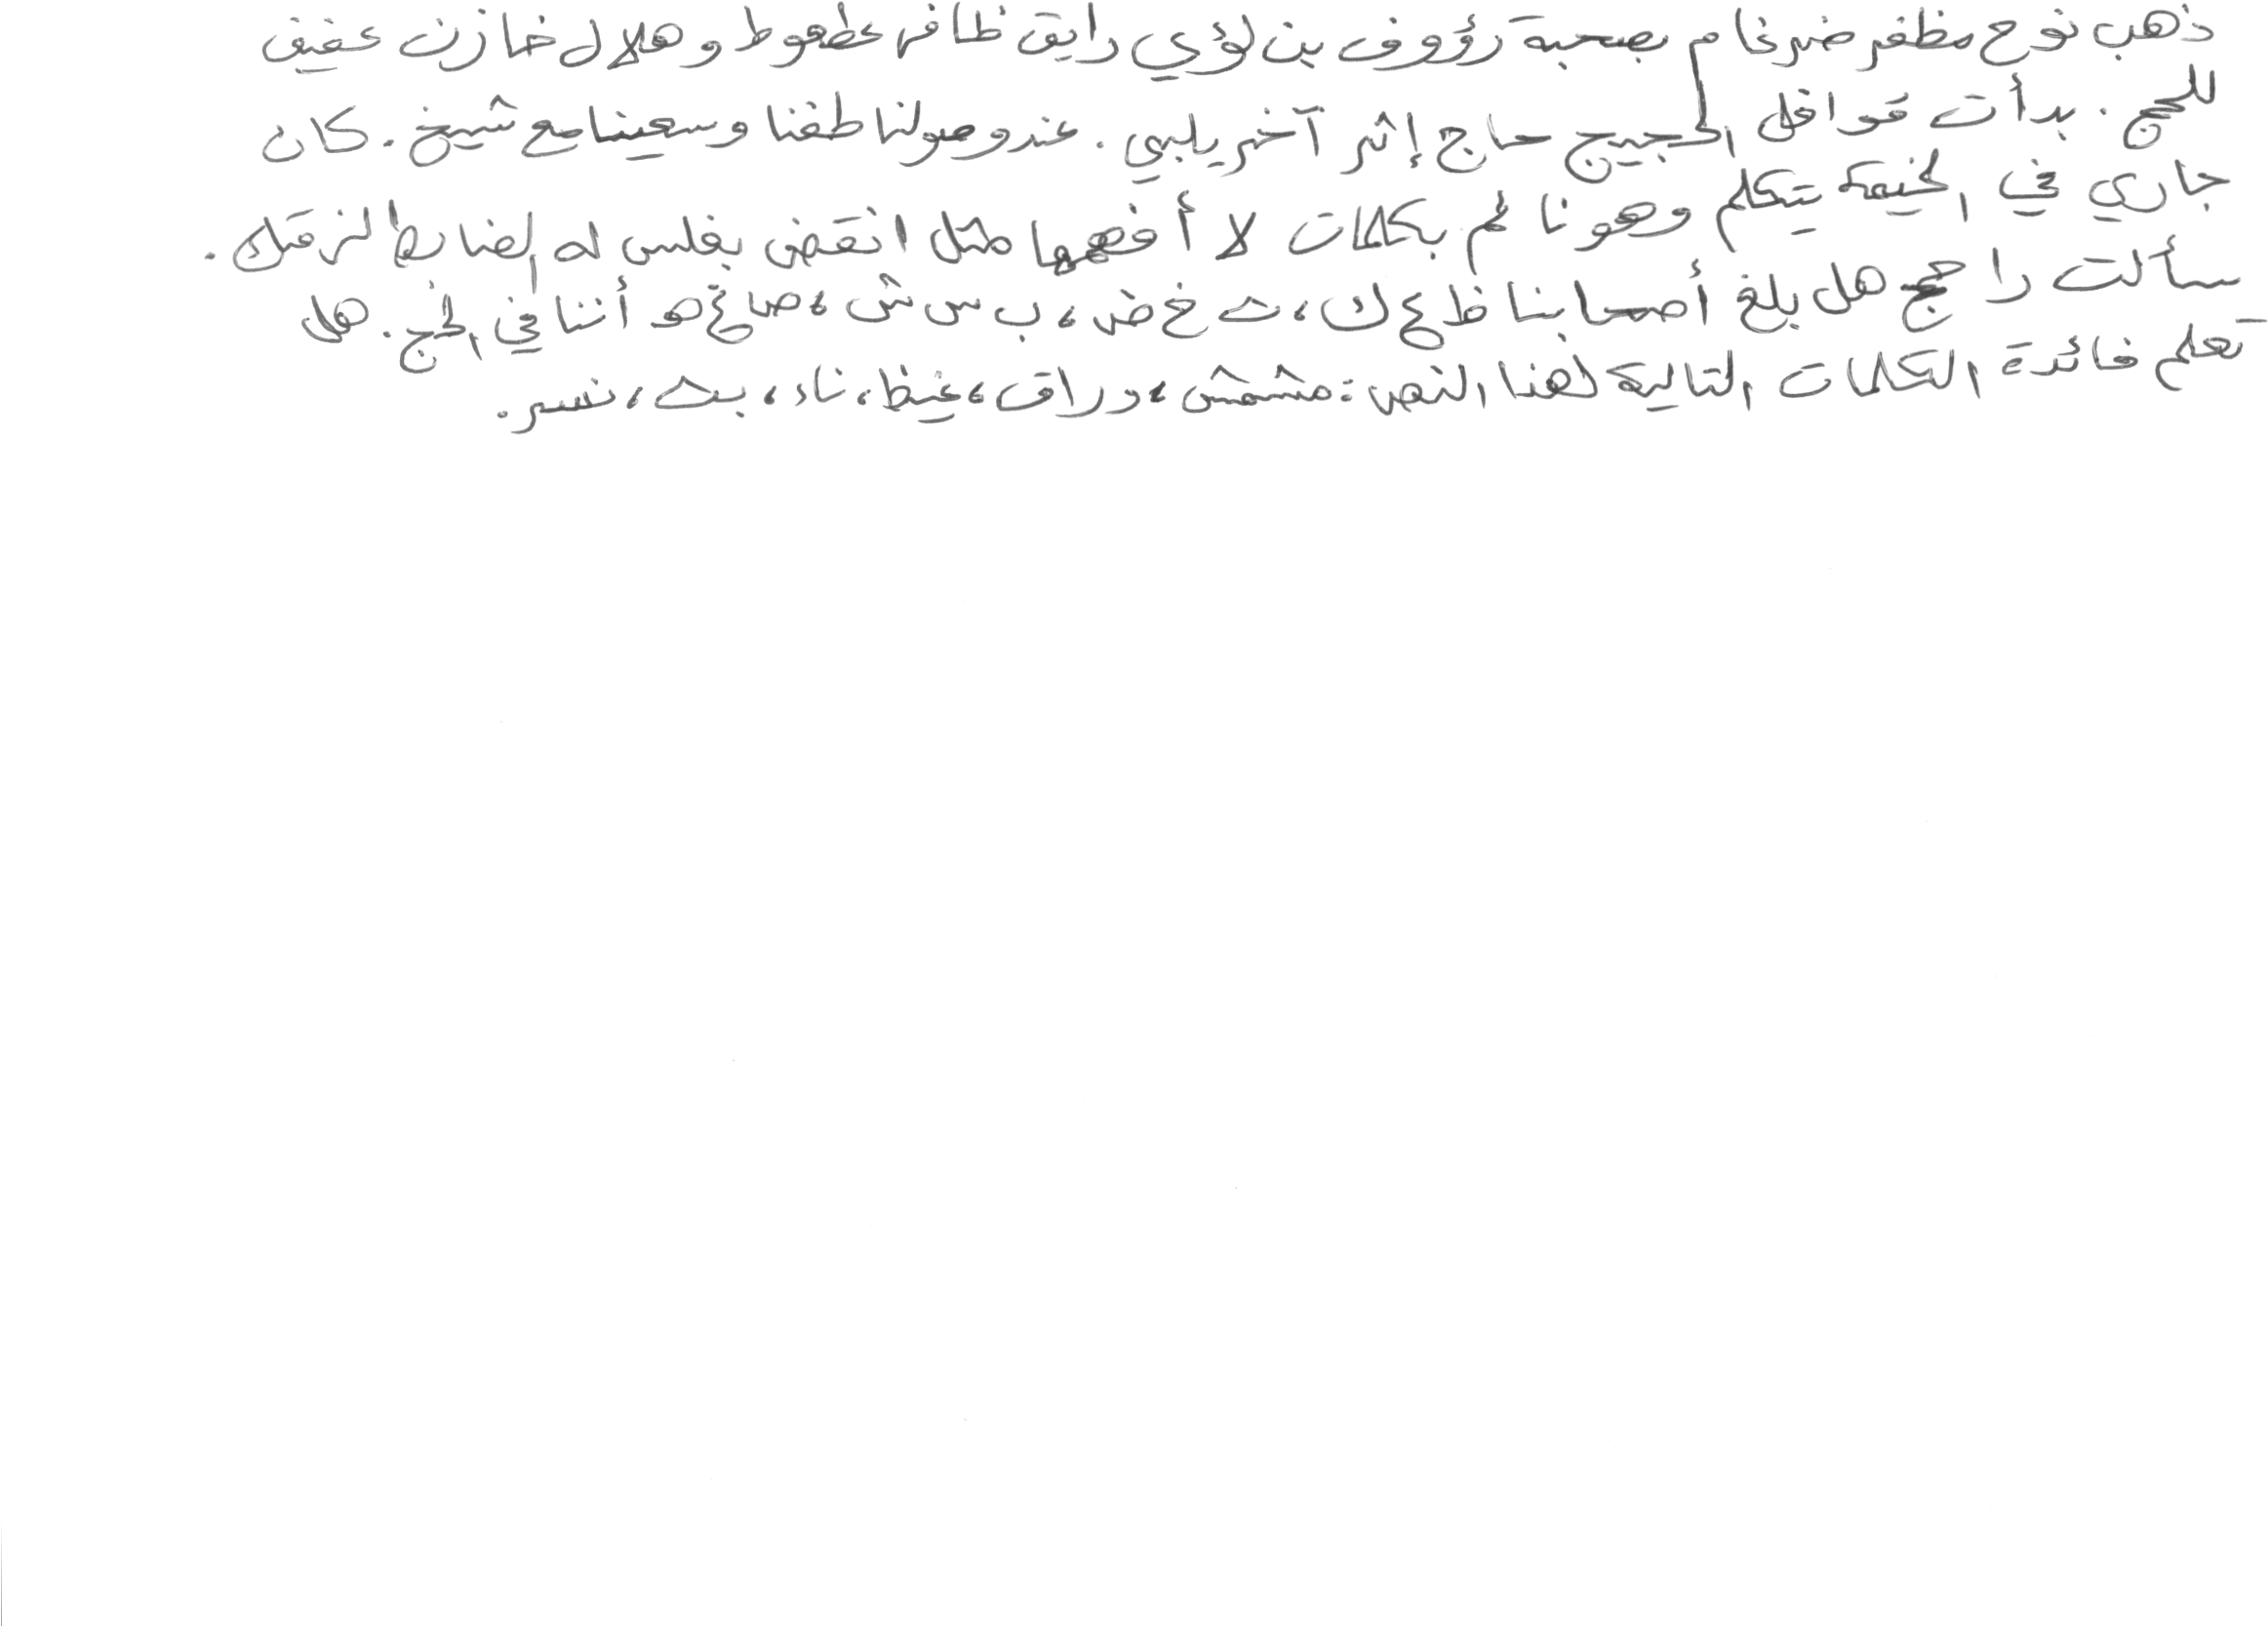 ذهب نوح مظفر ضرغام بصحبة رؤوف بن لؤي رايق ظافر عطعوط وهلال خازن عفيف
للحج. بدأت قوافل الحجيج حاج إثر آخر يلبي. عند وصولنا طفنا وسعينا مع شيخ. كان
جاري في الخيمة يتكلم وهو نائم بكلمات لا أفهمها مثل انقض بفلس له لضابط لزقك.
سألت راجح هل بلغ أصحابنا ظ ع ك، ث خ ض، ب س ش، ص غ ه أننا في الحج. هل
تعلم فائدة الكلمات التالية لهذا النص: مشمش، وراق، غيظ، ناء، بث، نسر.